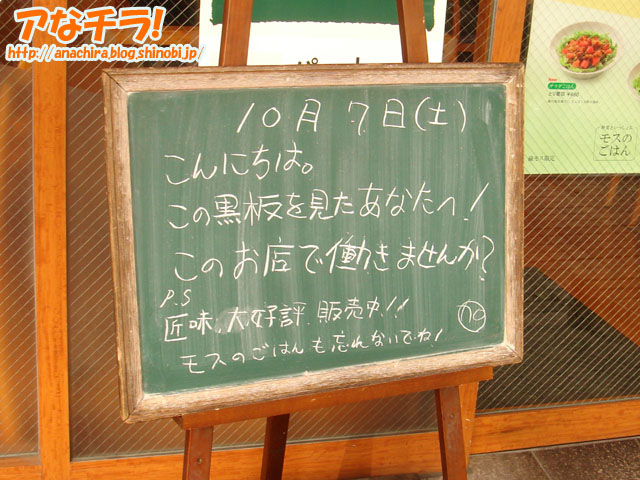 アなチラ!
http://anachira.blog.shinobi.jp/
10月7日(土)
こんにちは。
この黒板を見たあなたへ!
このお店で働きませんか?
P.S
匠味、大好評、販売中!!
モスのごはんも忘れないでネ!
モスの
ごはん